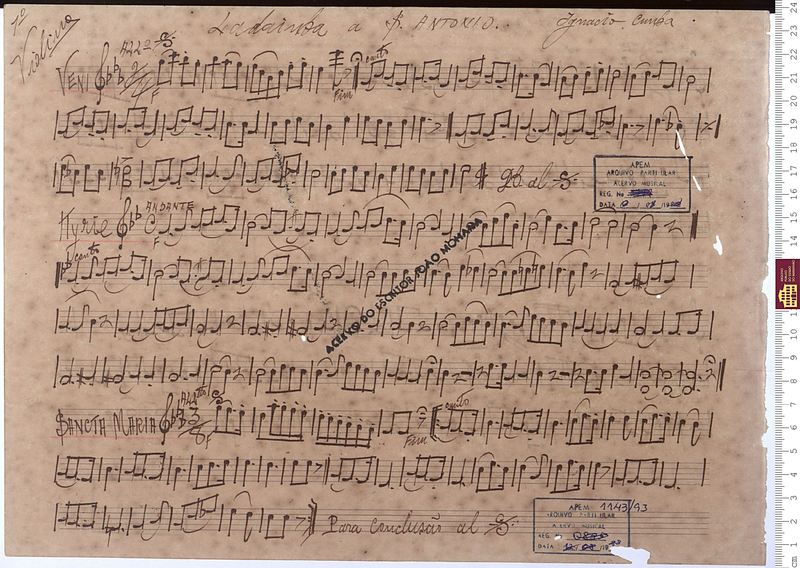 1º
Violino
Ladainha a S. ANTONIO.
Ignacio Cunha.
VENI
Fim
canto
D.C. al
APEM
ARQUIVO PARTICULAR
ACERVO MUSICAL
REG. No
DATA
Kyrie
ANDANTE
F
P. canto
ACERVO DO ESCRITOR JOÃO MOHANA
SANCTA MARIA
All.tto
Fim
canto
Para conclusão al
APEM 1143/93
ARQUIVO PARTICULAR
ACERVO MUSICAL
REG.
DATA
cm 1 2 3 4 5 6 7 8 9 10 11 12 13 14 15 16 17 18 19 20 21 22 23 24